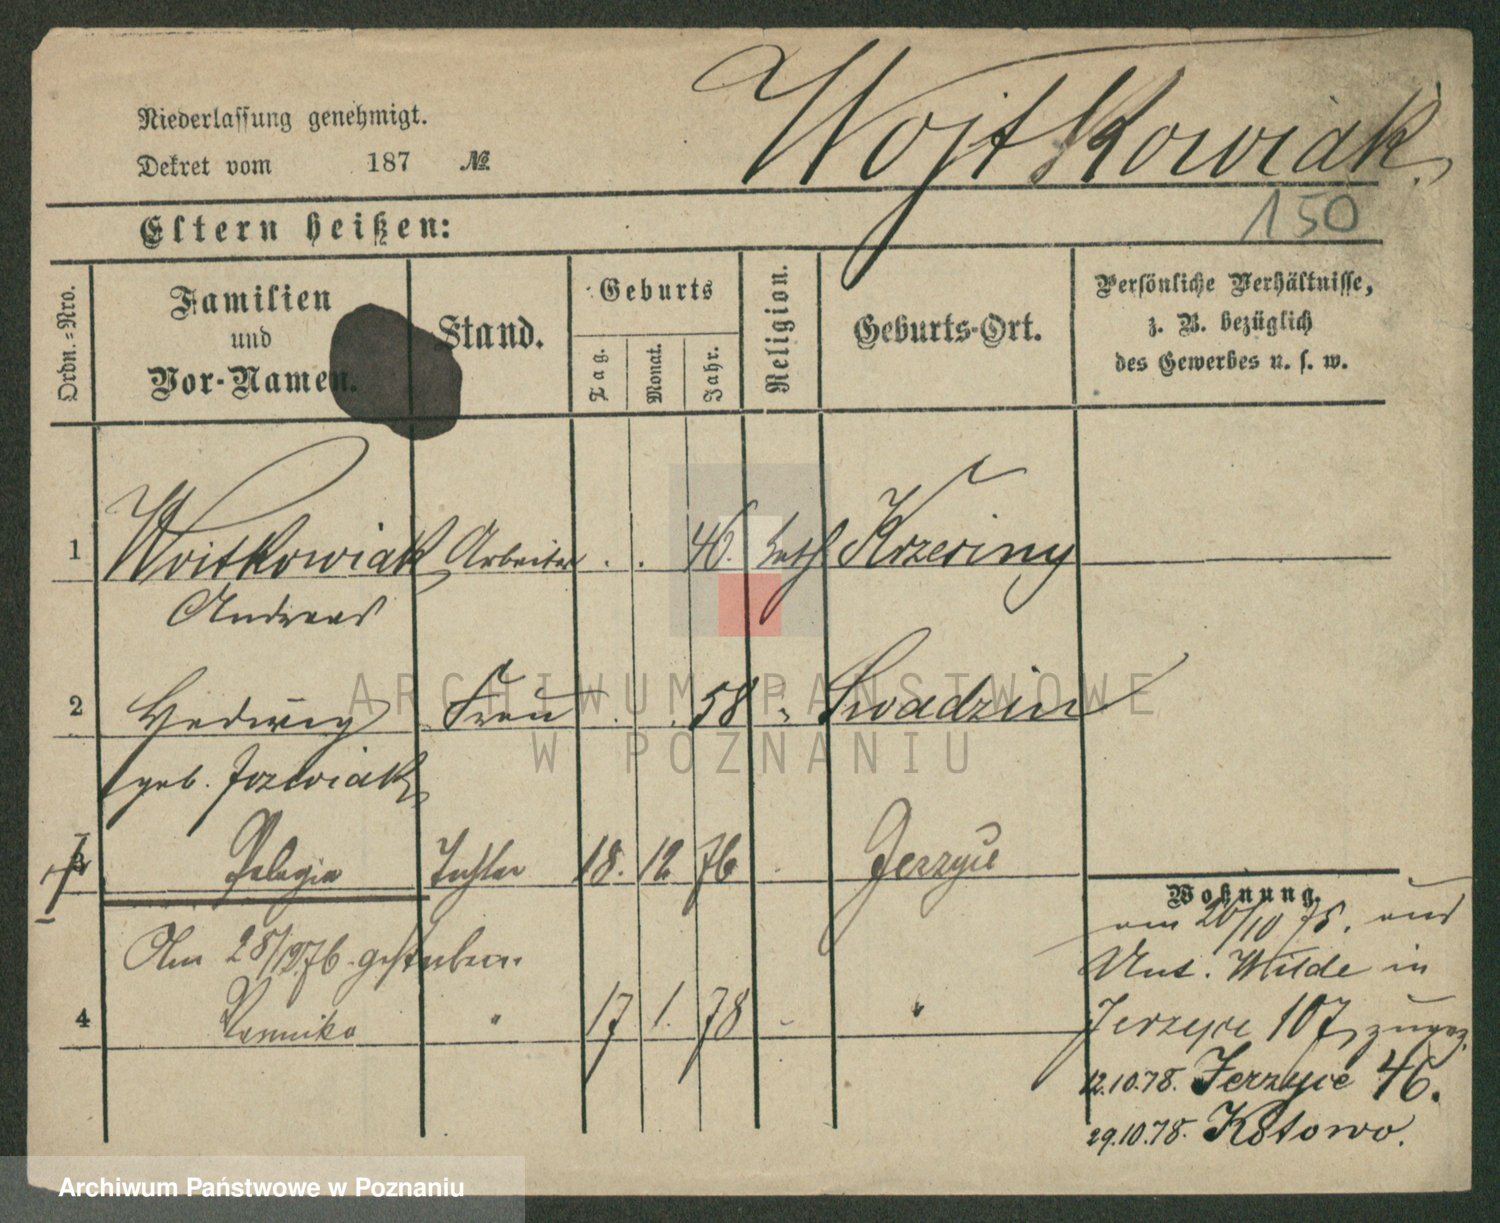 Wojtkowiak.
Niederlassung genehmigt.
Dekret vom 187 №
150
Eltern heißen:
Ordn.-Nro.
Familien
und
Vor-Namen.
Stand.
Geburts
Tag.
Monat.
Jahr.
Religion.
Geburts-Ort.
Persönliche Verhältnisse,
z. B. bezüglich
des Gewerbes u. s. w.
1 Woitkowiak Arbeiter . . 46. kath Krzesiny
Andreas
2 Hedwig Frau . . 58 "
geb. Jozwiak
3 Pelagia Tochter 18. 12 76 Jerzyce
† Am 28/12 76 gestorben.
4 " 17 1. 78 "
Wohnung.
am 20/10 75. aus
Wilde in
Jerzyce 107, zugez.
12.10.78. Jerzyce 46.
29.10.78. Kotowo.
ARCHIWUM PAŃSTWOWE
W POZNANIU
Archiwum Państwowe w Poznaniu